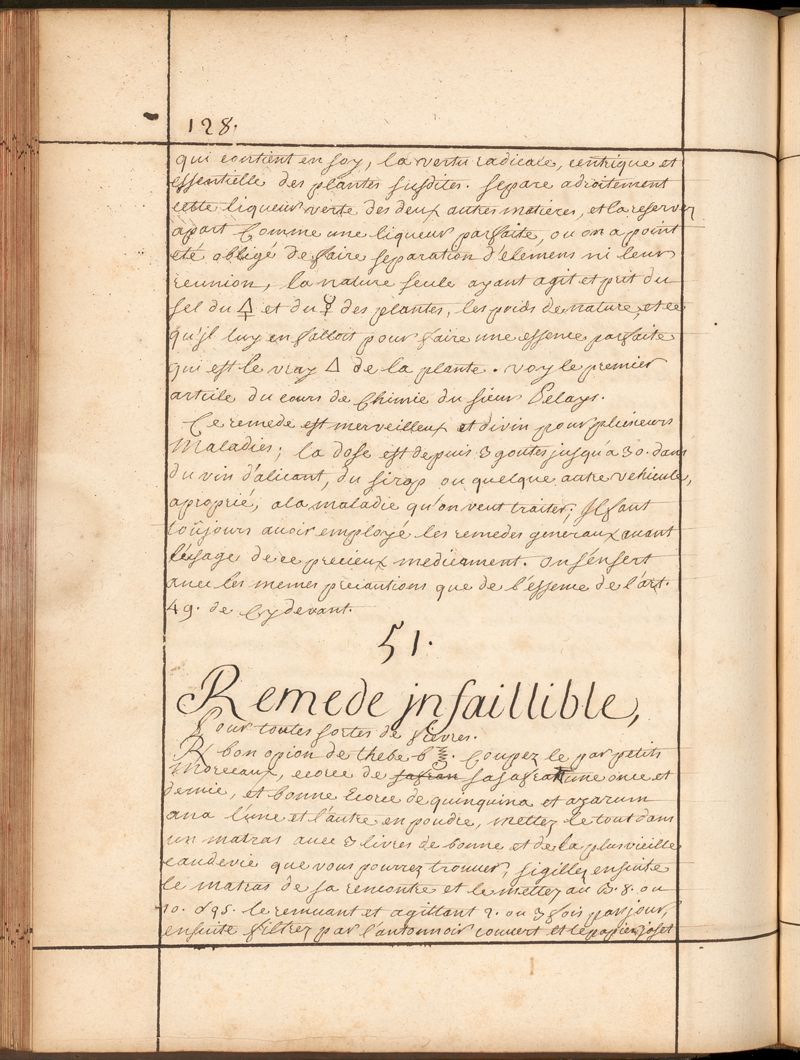 128.
qui contient en soy, la vertu radicale, centrique et
essentielle des plantes susdites. separe adroitement
cette liqueur verte des deux autres matieres, et la reservez
apart Comme une liqueur parfaite, ou on a point
eté obligé de faire separation d'elemens ni leur
reunion, la nature seule ayant agit et prit du
sel du 🜍 et du ☿ des plantes, les poids de nature, et ce
qu'jl luy en falloit pour faire une essence parfaite
qui est le vray △ de la plante. voy le premier
article du cours de Chimie du sieur Pelays.
Ce remede est merveilleux et divin pour plusieurs
Maladies; la dose est depuis 3 goutes jusqu'a 30. dans
du vin d'alicant, du sirop ou quelque autre vehicule,
aproprié, a la maladie qu'on veut traiter; Jl faut
toûjours avoir employé les remedes generaux avant
l'usage de ce precieux medicament. on s'en sert
avec les memes precautions que de l'essence de l'art.
49. de Cy devant.
51.
Remede jnfaillible,
Pour toutes sortes de fievres.
℞ bon opion de thebe Coupez le par petits
Morceaux, ecorce de safran sasafras une once et
demie, et bonne Ecorce de quinquina et azarum
ana l'une et l'autre en poudre, mettez le tout dans
un matras avec 3 livres de bonne et de la plus vieille
eau de vie que vous pourrez trouver, sigillez ensuite
le matras de sa rencontre et le mettez au B. 8. ou
10. le remuant et agittant 2. ou 3 fois par jour,
ensuite filtrez par l'antonnoir couvert et le papier joset